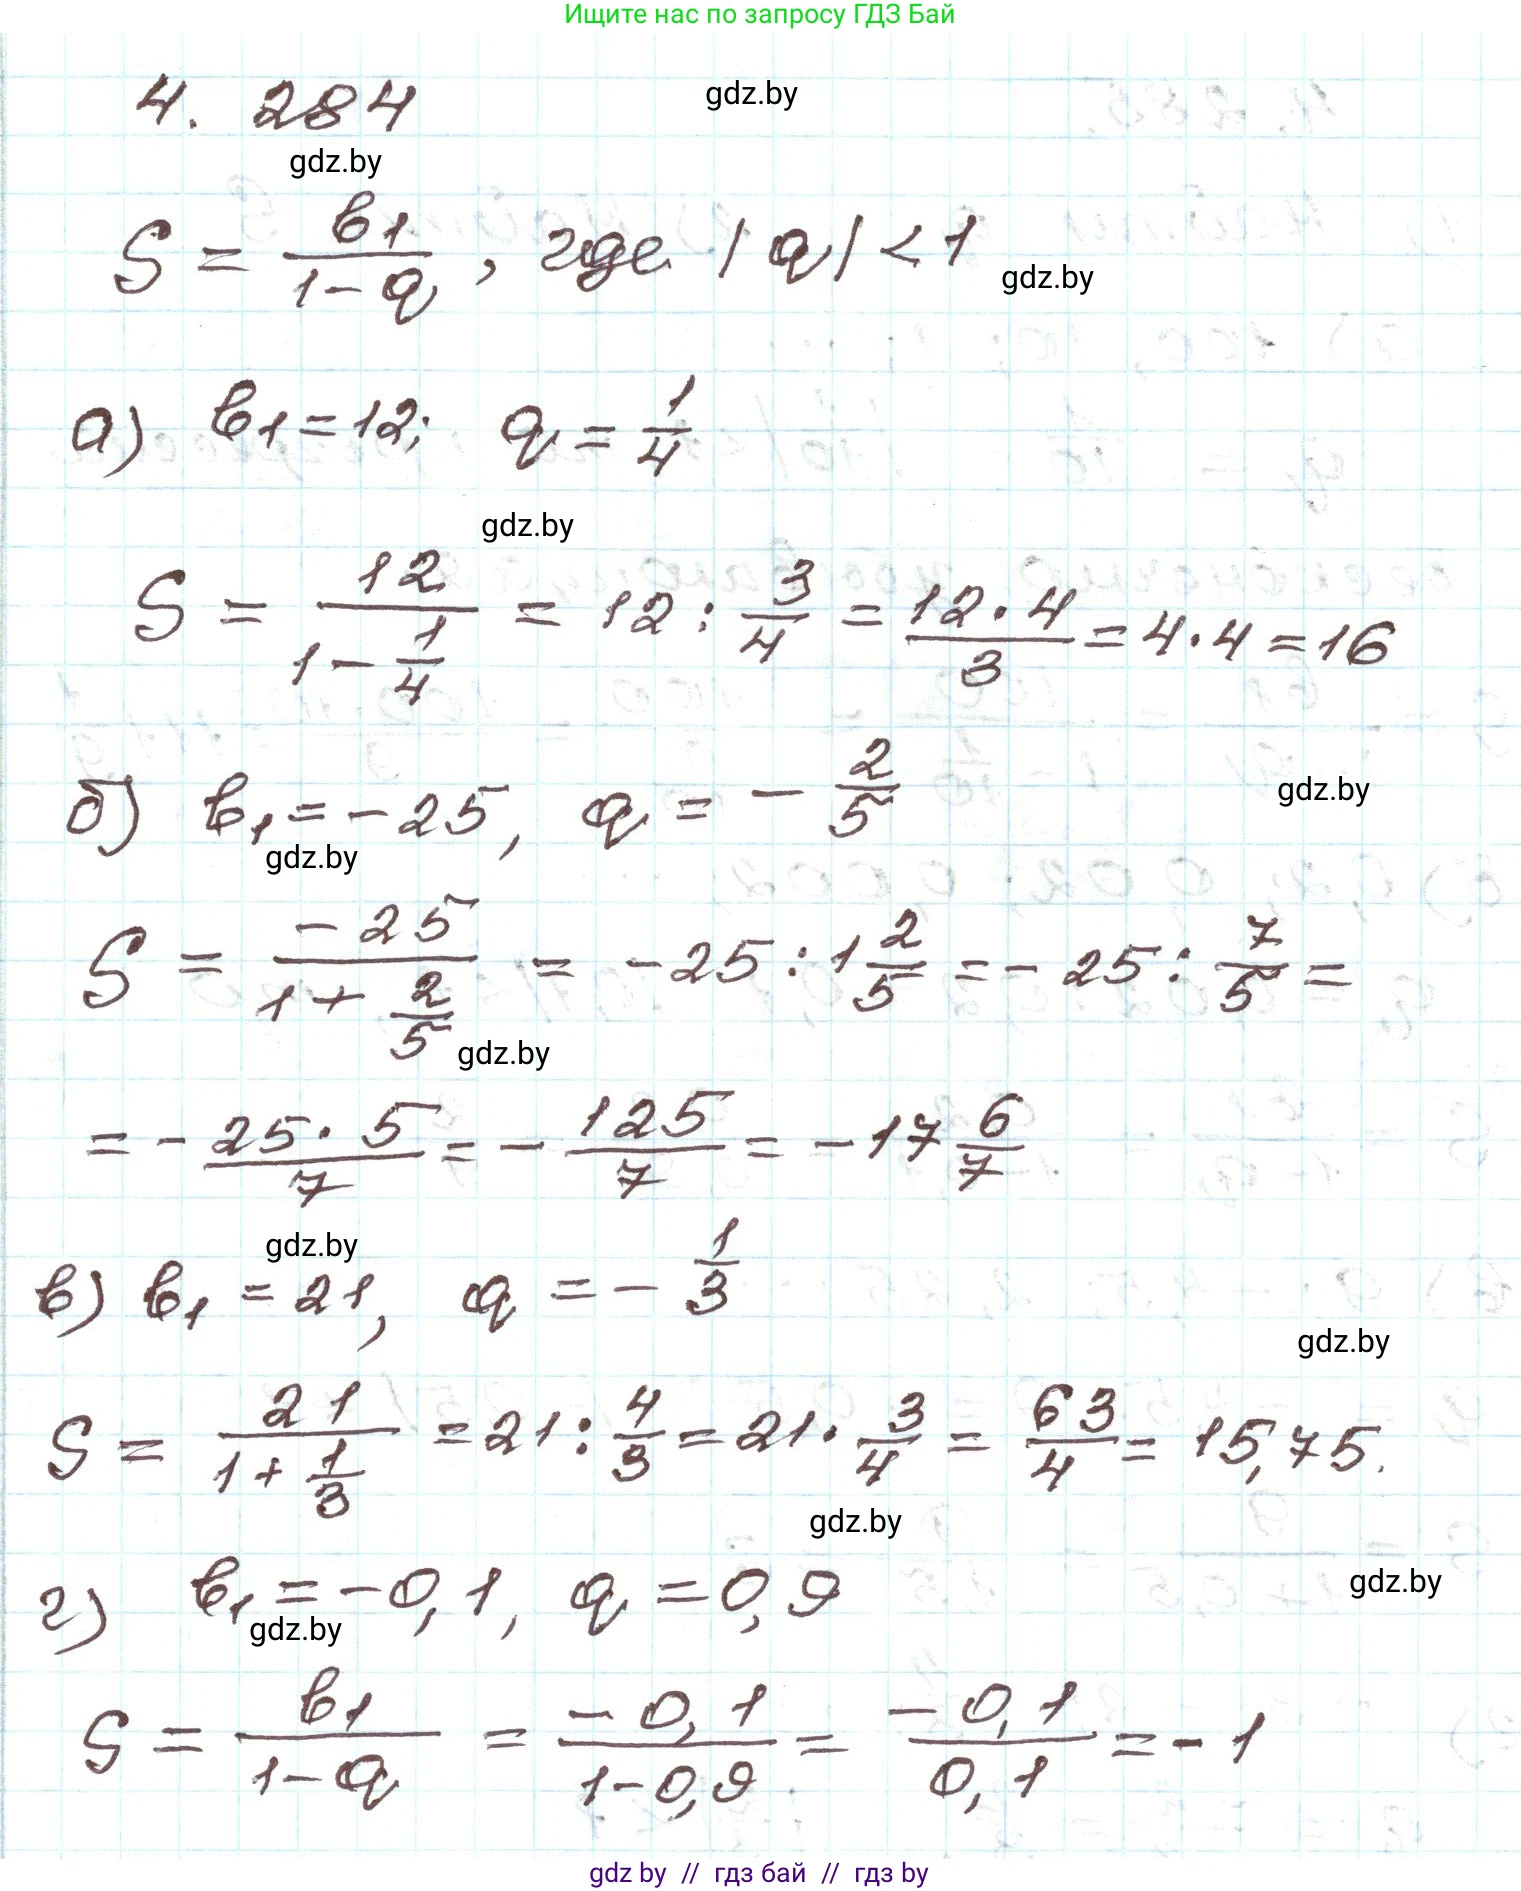 Ищите нас по запросу ГДЗ Бай
4. 284
gdz.by
gdz.by
S = b₁/(1-q), где |q| < 1
gdz.by
а) b₁ = 12; q = 1/4
gdz.by
S = 12/(1 - 1/4) = 12 : 3/4 = (12·4)/3 = 4·4 = 16
б) b₁ = -25, q = -2/5
gdz.by
gdz.by
S = -25/(1 + 2/5) = -25 : 1 2/5 = -25 : 7/5 =
gdz.by
= -(25·5)/7 = -125/7 = -17 6/7
gdz.by
в) b₁ = 21, q = -1/3
gdz.by
S = 21/(1 + 1/3) = 21 : 4/3 = 21 · 3/4 = 63/4 = 15,75.
gdz.by
г) b₁ = -0,1, q = 0,9
gdz.by
gdz.by
S = b₁/(1-q) = -0,1/(1-0,9) = -0,1/0,1 = -1
gdz by // гдз бай // гдз by